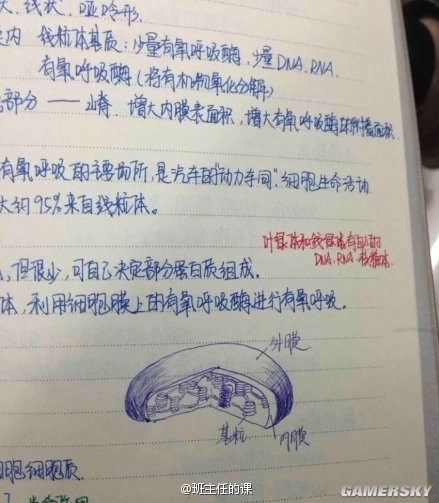 、线状、哑铃形.
内 线粒体基质:少量有氧呼吸酶,少量DNA.RNA.
有氧呼吸酶(将有机物氧化分解)
部分 —— 嵴. 增大内膜表面积,增大有氧呼吸酶附着面积.
有氧呼吸的主要场所,是汽车的"动力车间".细胞生命活动
大约95%来自线粒体。
叶绿体和线粒体有自己的
DNA.RNA.核糖体.
,但很少,可自己决定部分蛋白质组成.
体,利用细胞膜上的有氧呼吸酶进行有氧呼吸。
外膜
基粒
内膜
细胞质.
@班主任的课
GAMERSKY